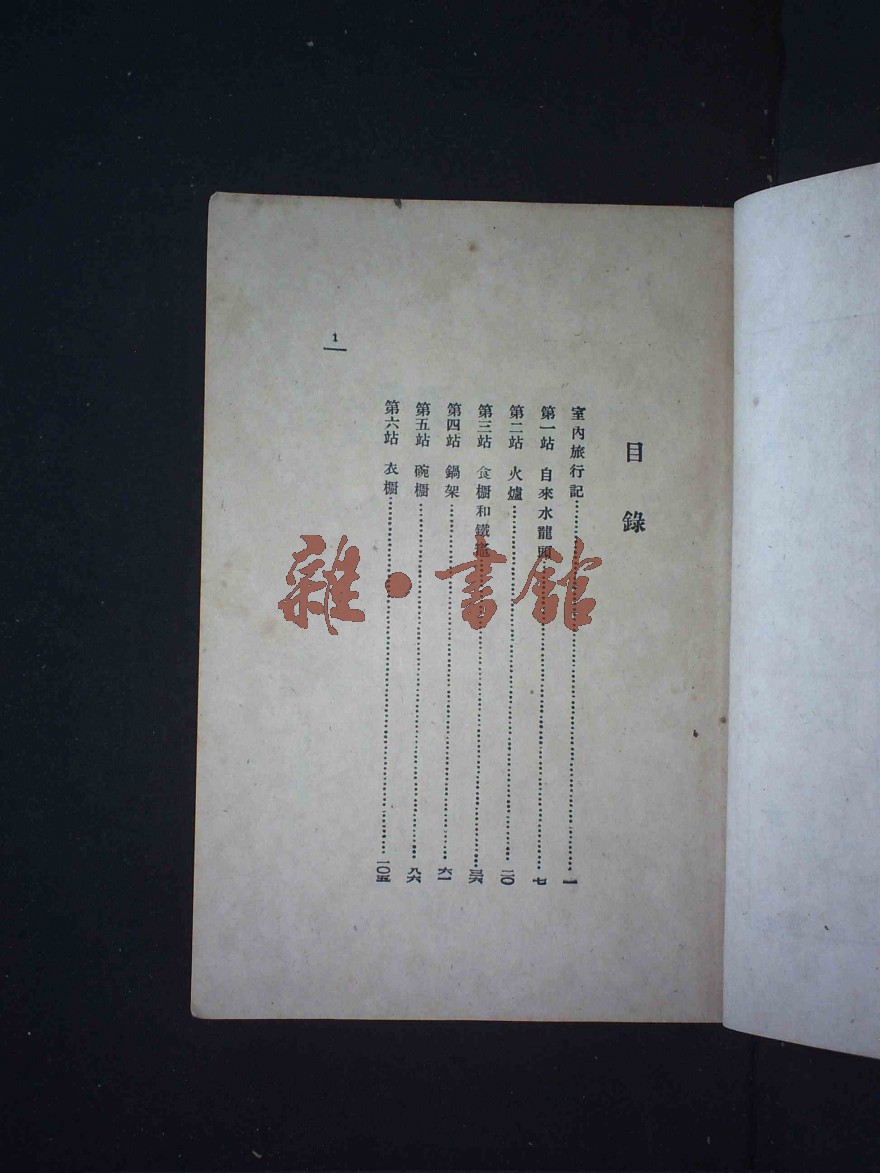 目錄
室內旅行記……一
第一站 自來水龍頭……七
第二站 火爐……二〇
第三站 食櫥和鐵竈……三六
第四站 鍋架……六一
第五站 碗櫥……八六
第六站 衣櫥……一〇五
1
雜·書館